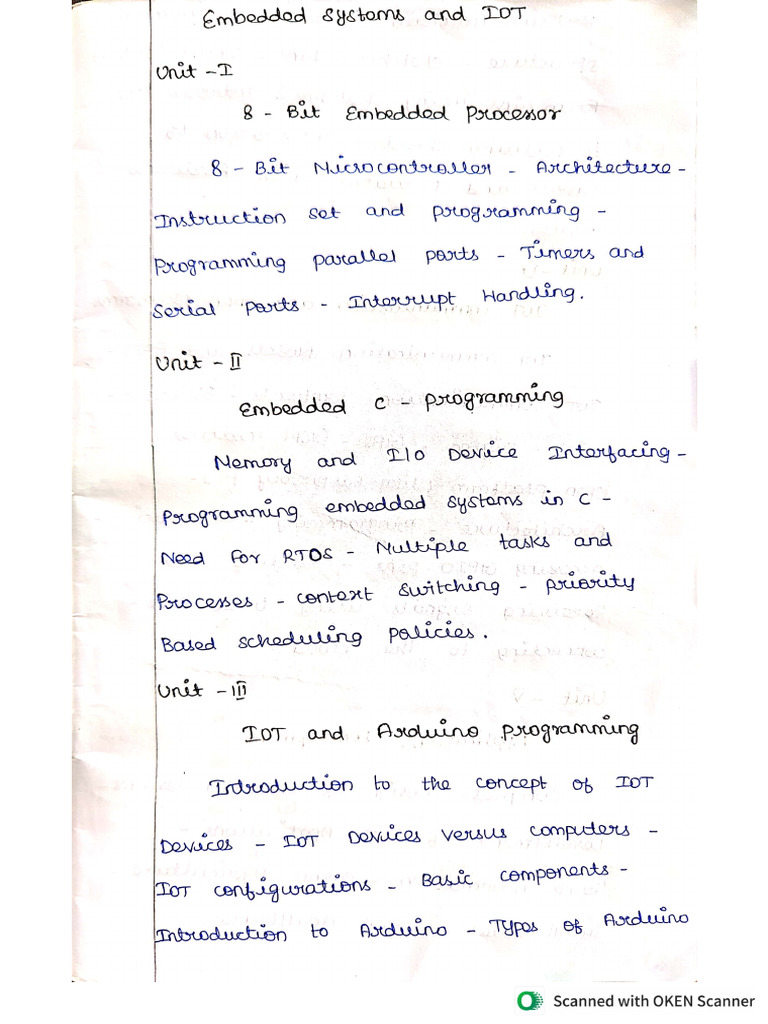 Embedded Systems and IOT
Unit - I
8 - Bit Embedded Processor
8 - Bit Microcontroller - Architecture -
Instruction set and programming -
Programming parallel ports - Timers and
Serial Ports - Interrupt Handling.
Unit - II
Embedded C - Programming
Memory and I/O Device Interfacing -
Programming embedded systems in C -
Need For RTOS - Multiple tasks and
Processes - context switching - priority
Based scheduling policies.
Unit - III
IOT and Arduino programming
Introduction to the concept of IOT
Devices - IOT Devices versus computers -
IOT configurations - Basic components -
Introduction to Arduino - Types of Arduino
Scanned with OKEN Scanner